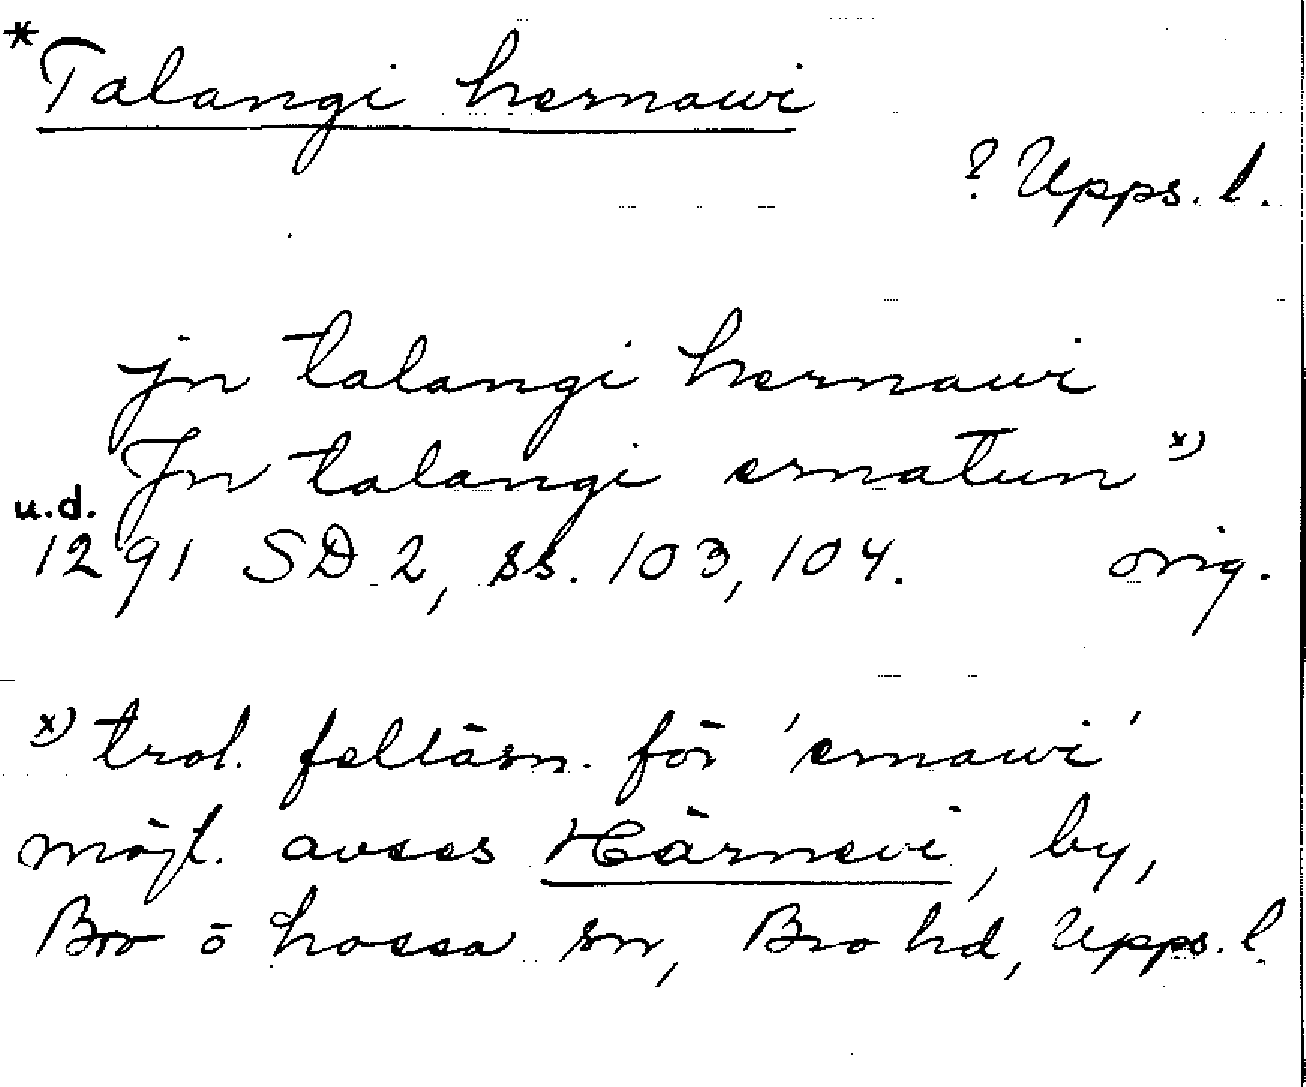 *Talangi hernawi
? Upps. l.
jn talangi hernawi
Jn talangi ernatun x)
u.d.
1291 SD 2, ss. 103, 104. orig.
x) trol. felläsn. för 'ernawi'
möjl. avses Härnevi, by,
Bro o hossa sn, Bro hd, Upps. l.